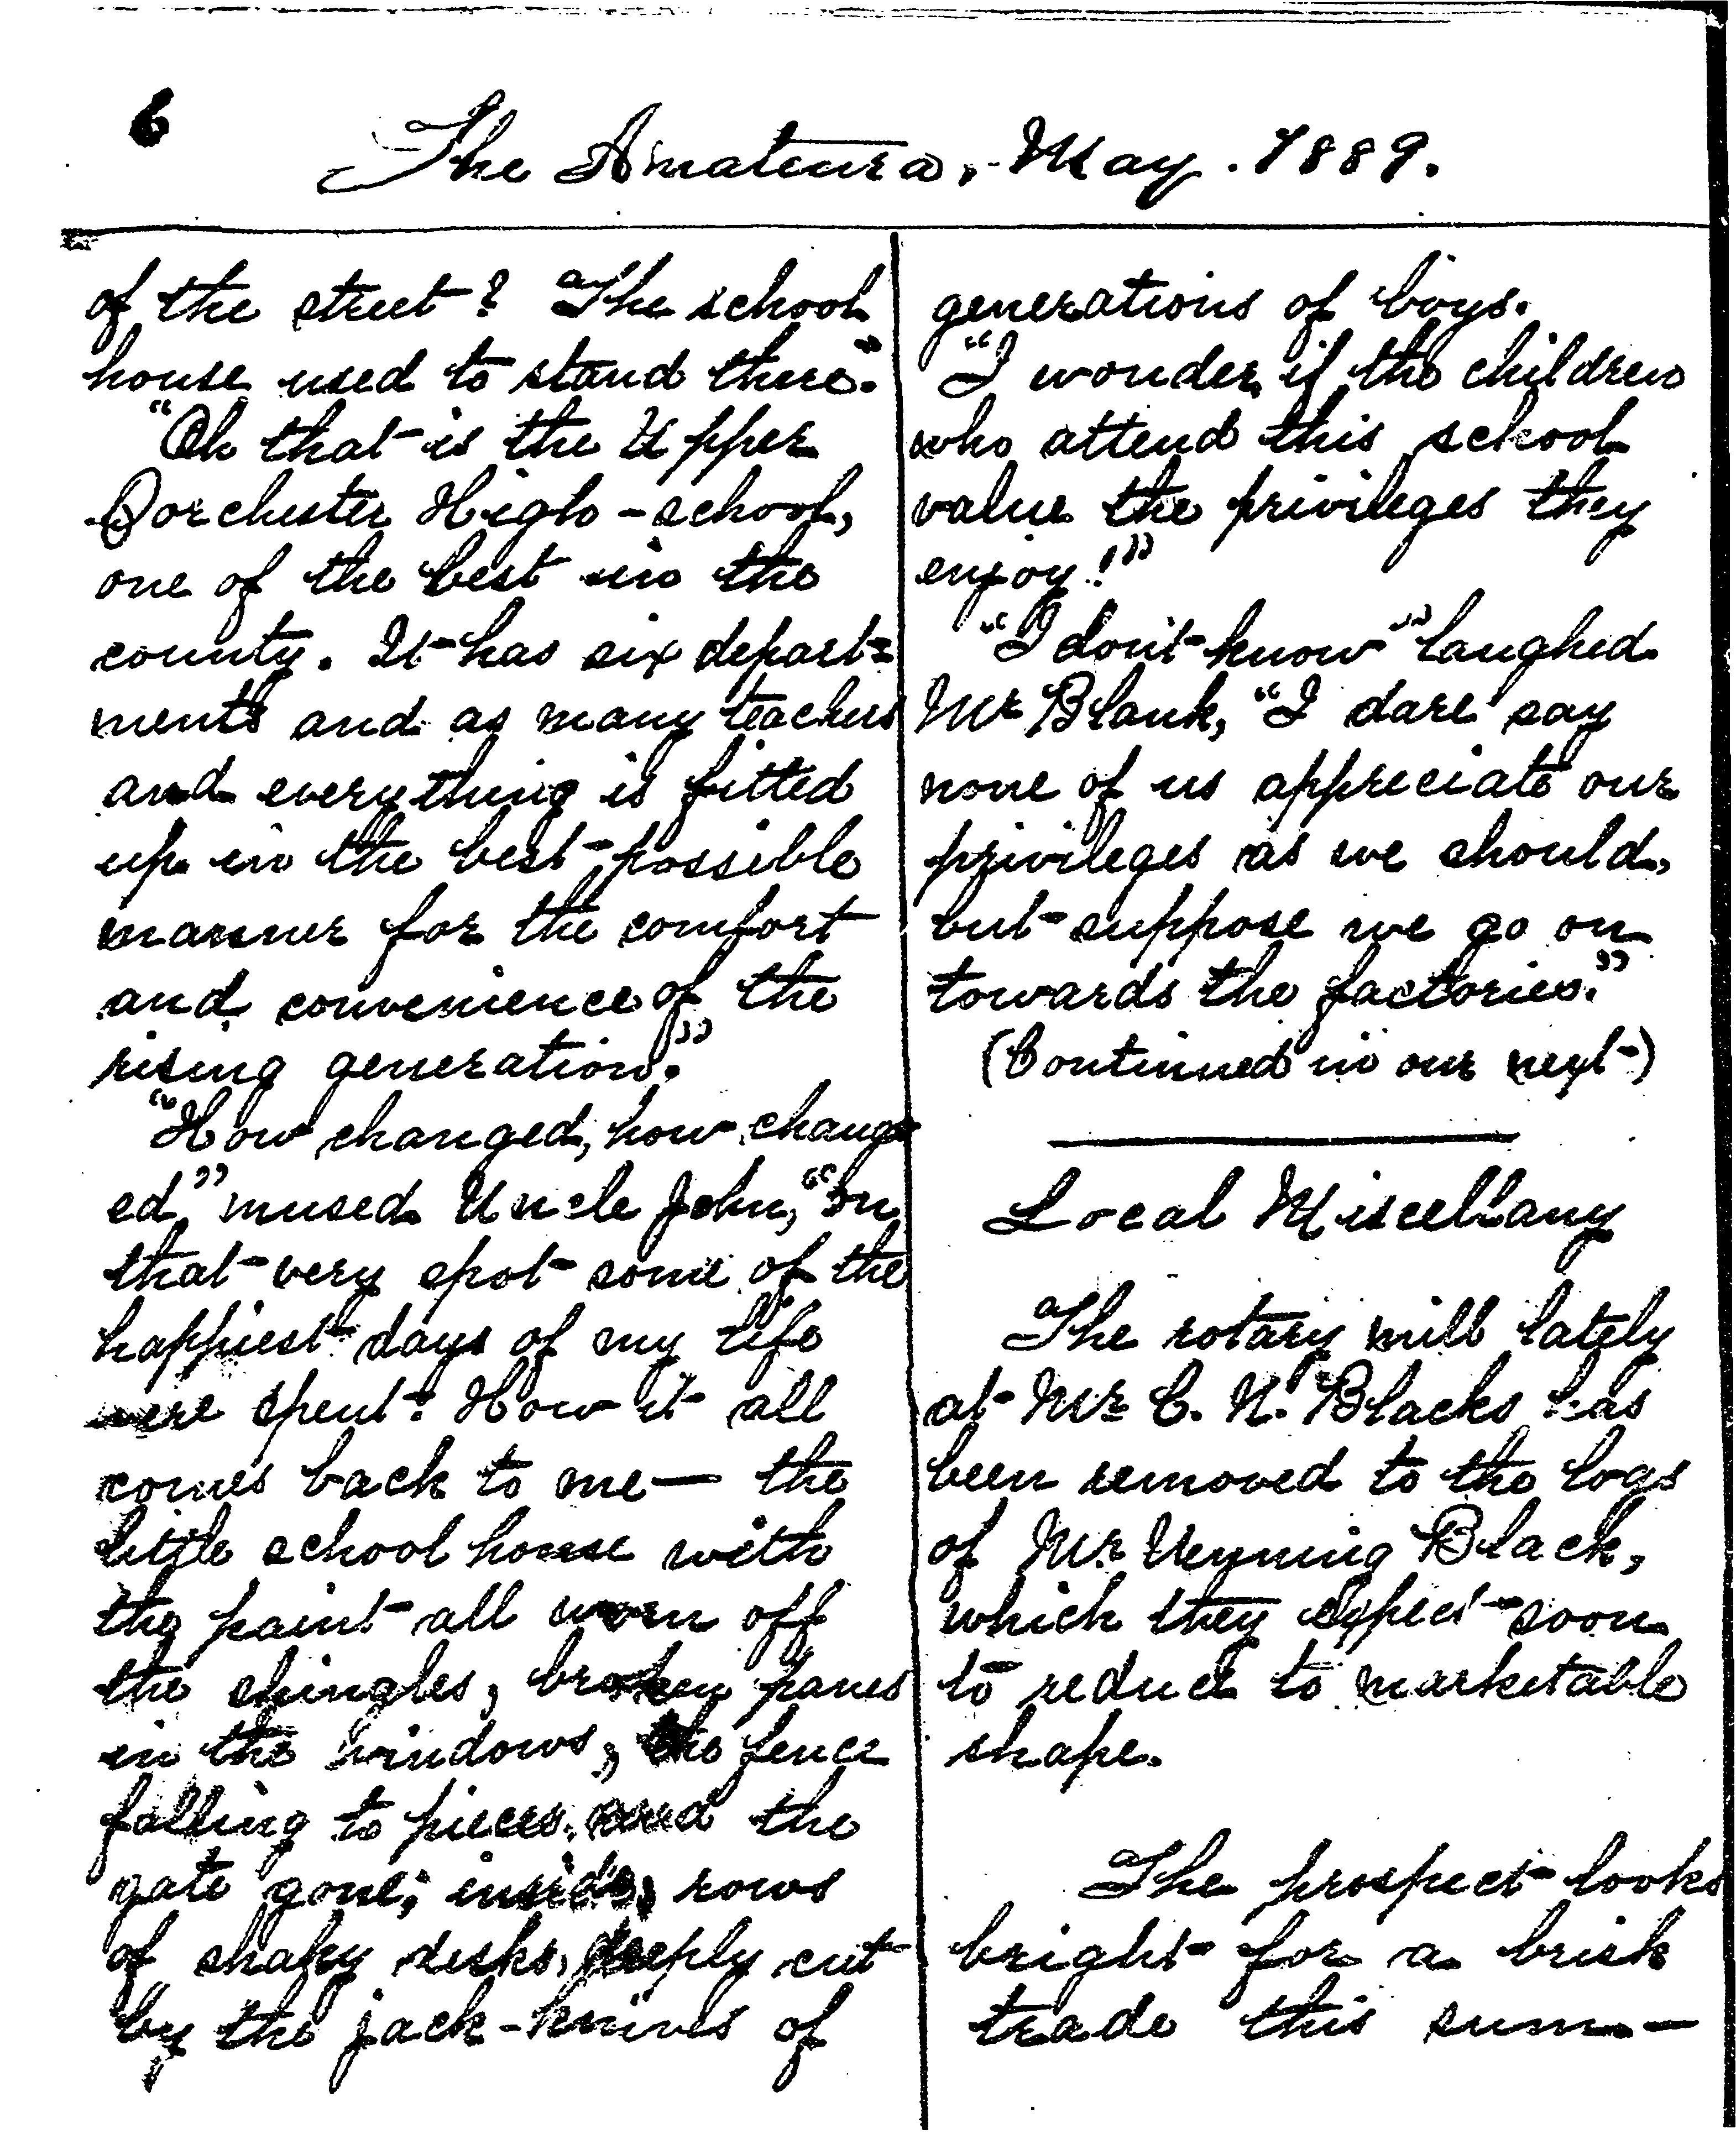 6
The Amateurs, May. 1889.
of the street? The school
house used to stand there."
"Oh that is the Upper
Dorchester High-school,
one of the best in the
county. It has six depart=
ments and as many teachers
and everything is fitted
up in the best possible
manner for the comfort
and convenience of the
rising generation."
"How changed, how chang
ed" mused Uncle John, "on
that very spot some of the
happiest days of my life
were spent. How it all
comes back to me — the
little school house with
the paint all worn off
the shingles, broken panes
in the windows, the fence
falling to pieces and the
gate gone; inside, rows
of shaky desks, deeply cut
by the jack-knives of
generations of boys.
"I wonder if the children
who attend this school
value the privileges they
enjoy!"
"I don't know" laughed
Mr Blank, "I dare say
none of us appreciate our
privileges as we should,
but suppose we go on
towards the factories."
(Continued in our next)
Local Miscellany
The rotary mill lately
at Mr C. N. Blacks has
been removed to the logs
of Mr. Venning Black,
which they expect soon
to reduce to marketable
shape.
The prospect looks
bright for a brisk
trade this sum-